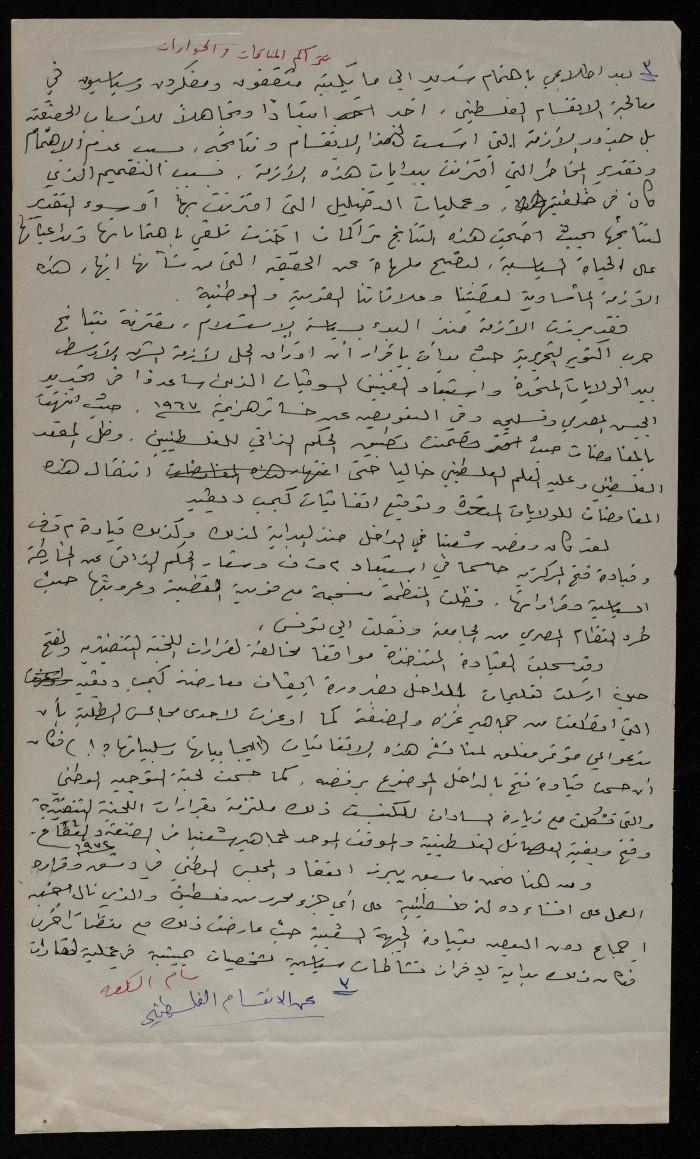 عن كل المناقشات والحوارات
٣ بعد اطلاعي باهتمام شديد الى ما يكتبه مثقفون ومفكرون وسياسيون في
معالجة الانقسام الفلسطيني، أجد ابتعاداً وتجاهلاً للأسباب الحقيقية
بل جذور الأزمة التي اسست لهذا الانقسام ونتائجه، بسبب عدم الاهتمام
وتقدير المخاطر التي اقترنت ببدايات هذه الأزمة، بسبب التقصيم الذي
كان في خلفيتها، وعمليات التضليل التي اقترنت بها أو سوء التقدير
لنتائجها بحيث اضحت هذه النتائج تراكمات اخذت تلقي باهتماماتها وتداعياتها
على الحياة السياسية، لتصبح ملهاة عن الحقيقة التي من شأنها انهاء هذه
الأزمة المأساوية لقضيتنا وعلاقاتنا القومية والوطنية.
فقد برزت الأزمة منذ البدء بسياسة الاستسلام، مقترنة بنتائج
حرب اكتوبر التحريرية حيث بدأت بإقرار أن اوراق الحل لأزمة الشرق الأوسط
بيد الولايات المتحدة واستبعاد الفنيين السوفيات الذين ساعدوا في تجديد
الجيش المصري وتسليحه وفي التعويض عن خسائر هزيمة ١٩٦٧. حيث انتهت
بالمفاوضات حيث تضمنت تطبيق الحكم الذاتي للفلسطينيين. وظل المقعد
الفلسطيني وعليه العلم الفلسطيني خاليا حتى انتهاء هذه المفاوضات انتقال هذه
المفاوضات للولايات المتحدة وتوقيع اتفاقيات كمب ديفيد
لقد كان رفض شعبنا في الداخل منذ البداية لذلك وكذلك قيادة م ت ف
وقيادة فتح المركزية حاسما في استبعاد م ت ف وستار الحكم الذاتي عن الخارطة
السياسية وقراراتها. فظلت المنظمة منسجمة مع قومية القضية وعروبتها حيث
طرد النظام المصري من الجامعة ونقلت الى تونس.
وقد سجلت القيادة المتنفذة مواقفا مخالفة لقرارات اللجنة التنفيذية ولفتح
حين ارسلت تعليمات للداخل بضرورة ايقاف معارضة كمب ديفيد
التي انطلقت من جماهير غزة والضفة كما اوعزت لاحدى مجالس الطلبة بأن
يدعو الى مؤتمر مغلق لمناقشة هذه الاتفاقيات (ايجابياتها وسلبياتها؟!) فكان
أن حسمت قيادة فتح بالداخل الموضوع برفضه. كما حسمت لجنة التوجيه الوطني
والتي تشكلت مع زيارة السادات للكنيست ذلك ملتزمة بقرارات اللجنة التنفيذية
وفتح وبقية الفصائل الفلسطينية والموقف الموحد لجماهير شعبنا في الضفة والقطاع.
ومن هنا ضمن ما سبق يبرز انعقاد المجلس الوطني في دمشق ١٩٧٤ وقراره
العمل على انشاء دولة فلسطينية على أي جزء محرر من فلسطين والذي نال
اجماع دون البعض بقيادة الجبهة الشعبية حيث عارضت ذلك مع منظمات أخرى
فكان ذلك بداية لإفراز نشاطات سياسية لشخصيات
٧
عن الانقسام الفلسطيني